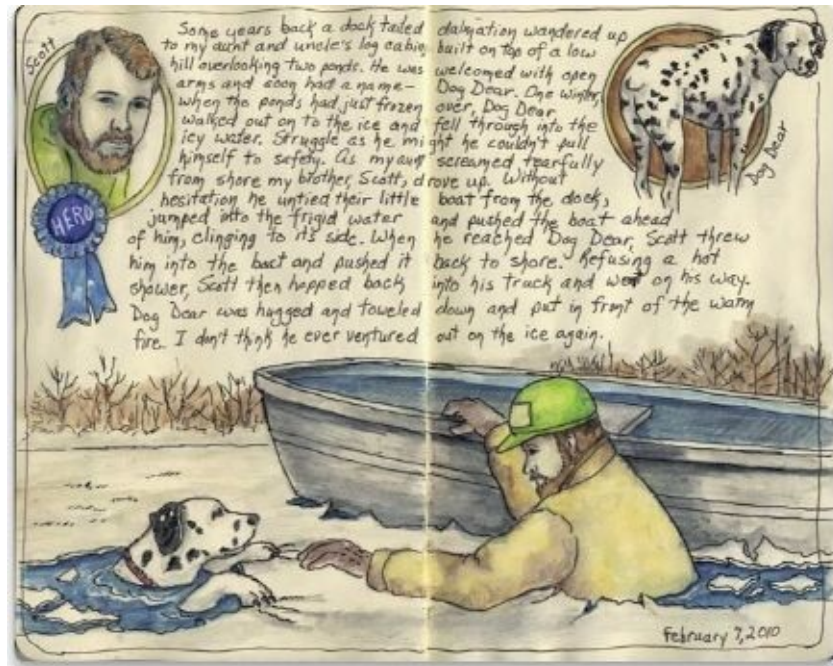 Scott
Some years back a dock tailed dalmation wandered up
to my aunt and uncle's log cabin, built on top of a low
hill overlooking two ponds. He was welcomed with open
arms and soon had a name— Dog Dear. One winter,
when the ponds had just frozen over, Dog Dear
walked out on to the ice and fell through into the
icy water. Struggle as he might he couldn't pull
himself to safety. As my aunt screamed tearfully
from shore my brother, Scott, drove up. Without
hesitation he untied their little boat from the dock,
jumped into the frigid water and pushed the boat ahead
of him, clinging to it's side. When he reached Dog Dear, Scott threw
him into the boat and pushed it back to shore. Refusing a hot
shower, Scott then hopped back into his truck and went on his way.
Dog Dear was hugged and toweled down and put in front of the warm
fire. I don't think he ever ventured out on the ice again.
HERO
Dog Dear
February 7, 2010